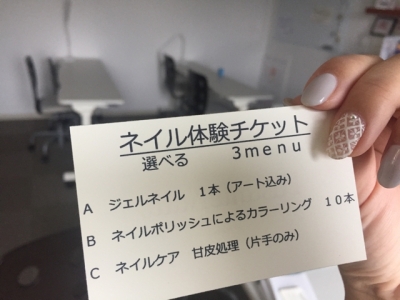 ネイル体験チケット
選べる 3menu
A ジェルネイル 1本(アート込み)
B ネイルポリッシュによるカラーリング 10本
C ネイルケア 甘皮処理(片手のみ)